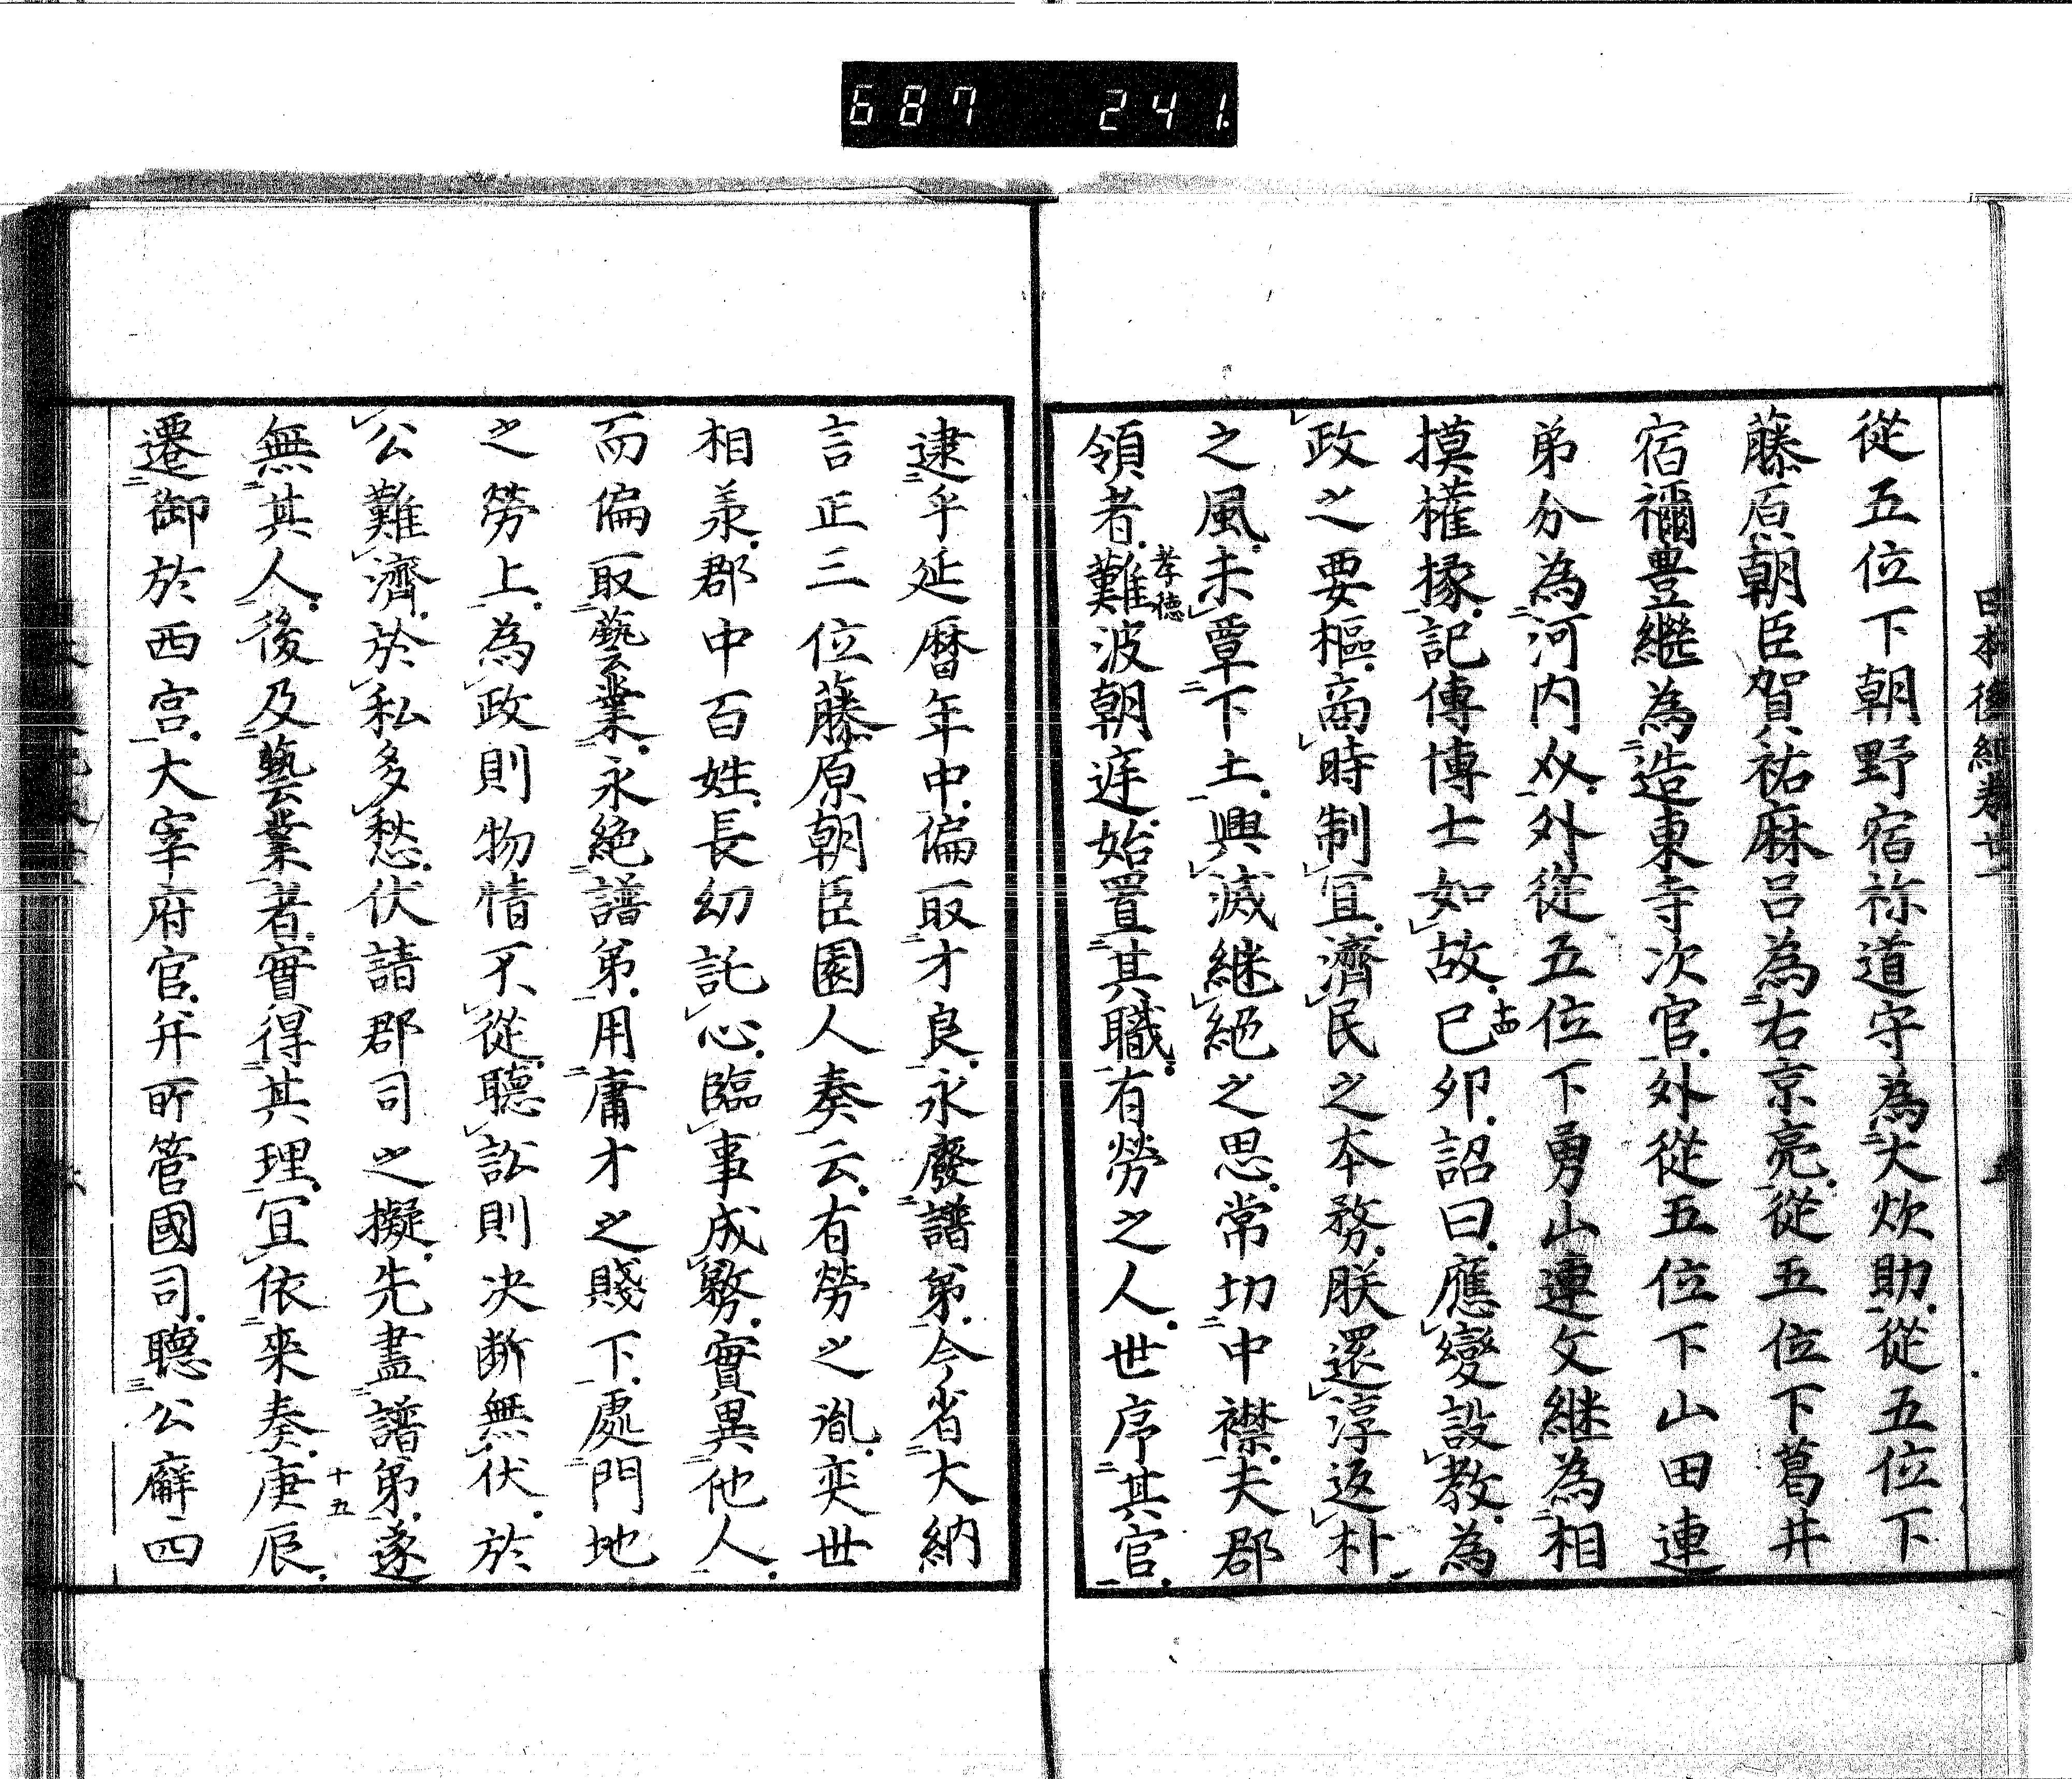 687 241
日本後紀卷廿一
從五位下朝野宿祢道守為大炊助從五位下
藤原朝臣賀祐麻呂為右京亮從五位下葛井
宿禰豊繼為造東寺次官外從五位下山田連
弟分為河内㸚外從五位下勇山連文継為相
摸權掾記傳博士如故己卯詔曰應變設教為
十四
政之要樞商時制宜濟民之本務朕還淳返朴
之風未覃下土興滅継絕之思常切中襟夫郡
領者難波朝廷始置其職有勞之人世序其官
孝德
逮乎延曆年中偏取才良永廢譜第今省大納
言正三位藤原朝臣園人奏云有勞之胤奕世
相羕郡中百姓長幼託心臨事成務實異他人
而偏取藝業永絕譜第用庸才之賤下處門地
之勞上為政則物情不從聽訟則决断無伏於
公難濟於私多愁伏請郡司之擬先盡譜第遂
無其人後及藝業者實得其理宜依來奏庚辰
十五
遷御於西宮大宰府官并所管國司聽公廨四